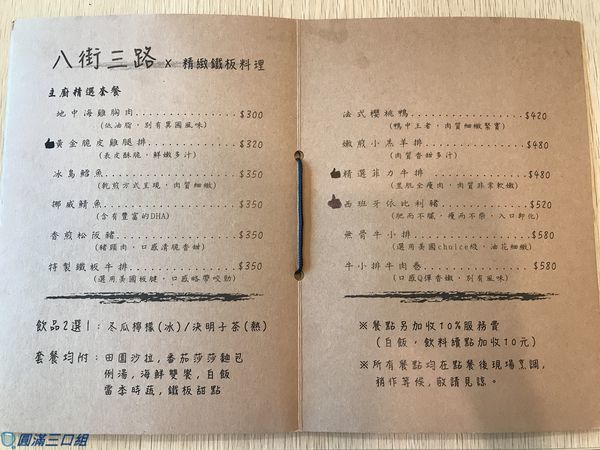 八街三路 x 精緻鐵板料理
主廚精選套餐
地中海雞胸肉..............$300
(低油脂，別有異國風味)
黃金脆皮雞腿排............$320
(表皮酥脆，鮮嫩多汁)
冰島鱈魚..................$350
(乾煎方式呈現，肉質細嫩)
挪威鯖魚..................$350
(含有豐富的DHA)
香煎松阪豬................$350
(豬頸肉，口感清脆香甜)
特製鐵板牛排..............$350
(選用美國板腱，口感略帶咬勁)
飲品2選1：冬瓜檸檬(冰)/決明子茶(熱)
套餐均附：田園沙拉,番茄莎莎麵包
例湯,海鮮雙饗,白飯
當季時蔬,鐵板甜點
法式櫻桃鴨................$420
(鴨中王者，肉質細緻緊實)
嫩煎小羔羊排..............$480
(肉質香甜多汁)
精選菲力牛排..............$480
(里肌全瘦肉，肉質非常軟嫩)
西班牙依比利豬............$520
(肥而不膩，瘦而不柴，入口即化)
無骨牛小排................$580
(選用美國choice級，油花細緻)
牛小排牛肉卷..............$580
(口感Q彈香嫩，別有風味)
※餐點另加收10%服務費
(白飯，飲料續點加收10元)
※所有餐點均在點餐後現場烹調,
稍作等候,敬請見諒。
圓滿三口組